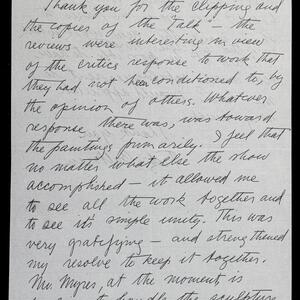 Thank you for the clipping and
the copies of the "Talk" – the
reviews were interesting in view
of the critics response to work that
they had not been conditioned to, by
the opinion of others. Whatever
response there was, was toward
the paintings primarily. I feel that
no matter what else the show
accomplished – it allowed me
to see all the work together and
to see it's simple unity. This was
very gratifying – and strengthened
my resolve to keep it together.
Mr. Myers, at the moment is
to handle the sculpture